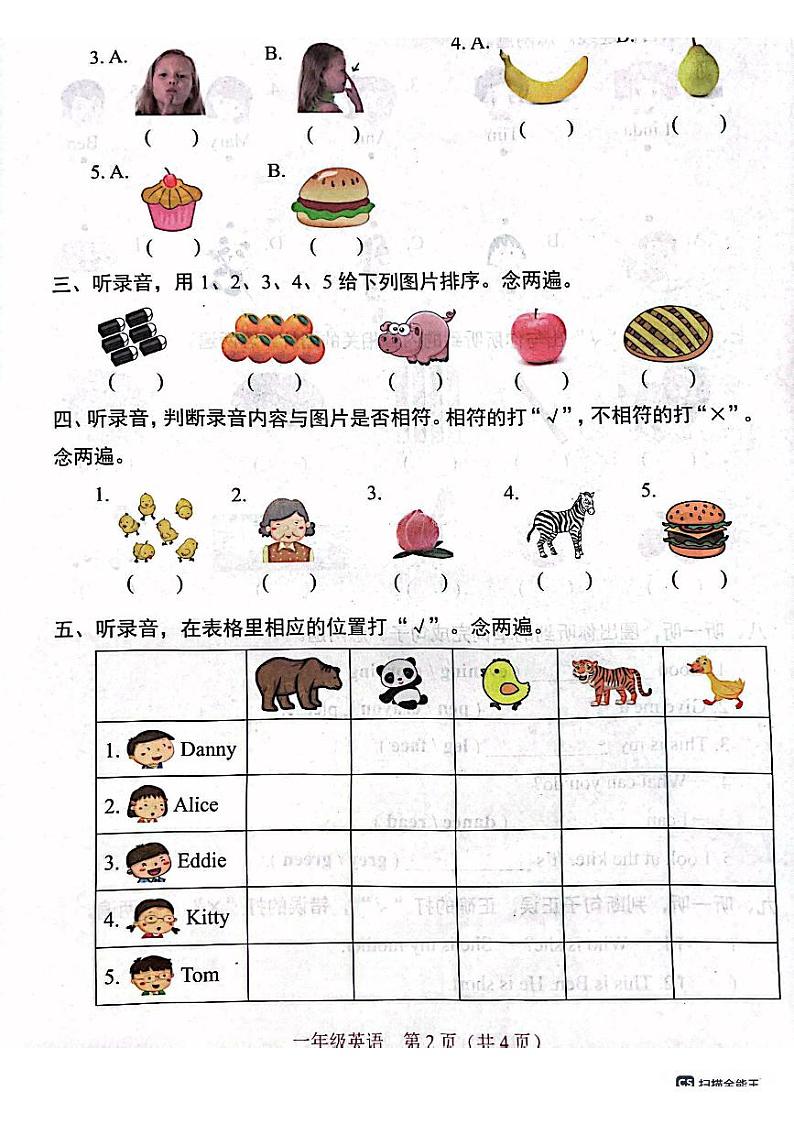 3. A. B. 4. A. B.
( ) ( ) ( ) ( )
5. A. B.
( ) ( )
三、听录音，用 1、2、3、4、5 给下列图片排序。念两遍。
( ) ( ) ( ) ( ) ( )
四、听录音，判断录音内容与图片是否相符。相符的打“√”，不相符的打“×”。
念两遍。
1. 2. 3. 4. 5.
( ) ( ) ( ) ( ) ( )
五、听录音，在表格里相应的位置打“√”。念两遍。
1. Danny
2. Alice
3. Eddie
4. Kitty
5. Tom
一年级英语 第 2 页（共 4 页）
CS 扫描全能王